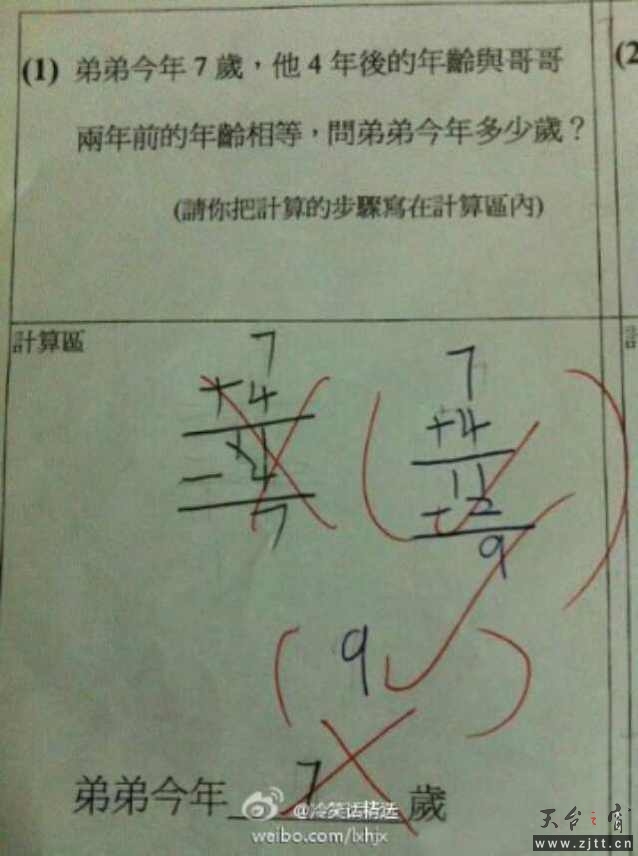 (1) 弟弟今年 7 歲，他 4 年後的年齡與哥哥
兩年前的年齡相等，問弟弟今年多少歲？
(請你把計算的步驟寫在計算區內)
(2
計算區
計
7
+4
11
-4
7
7
+4
11
-2
9
(9)
弟弟今年 7 歲
@冷笑话精选
weibo.com/lxhjx
天台之窗
www.zjtt.cn